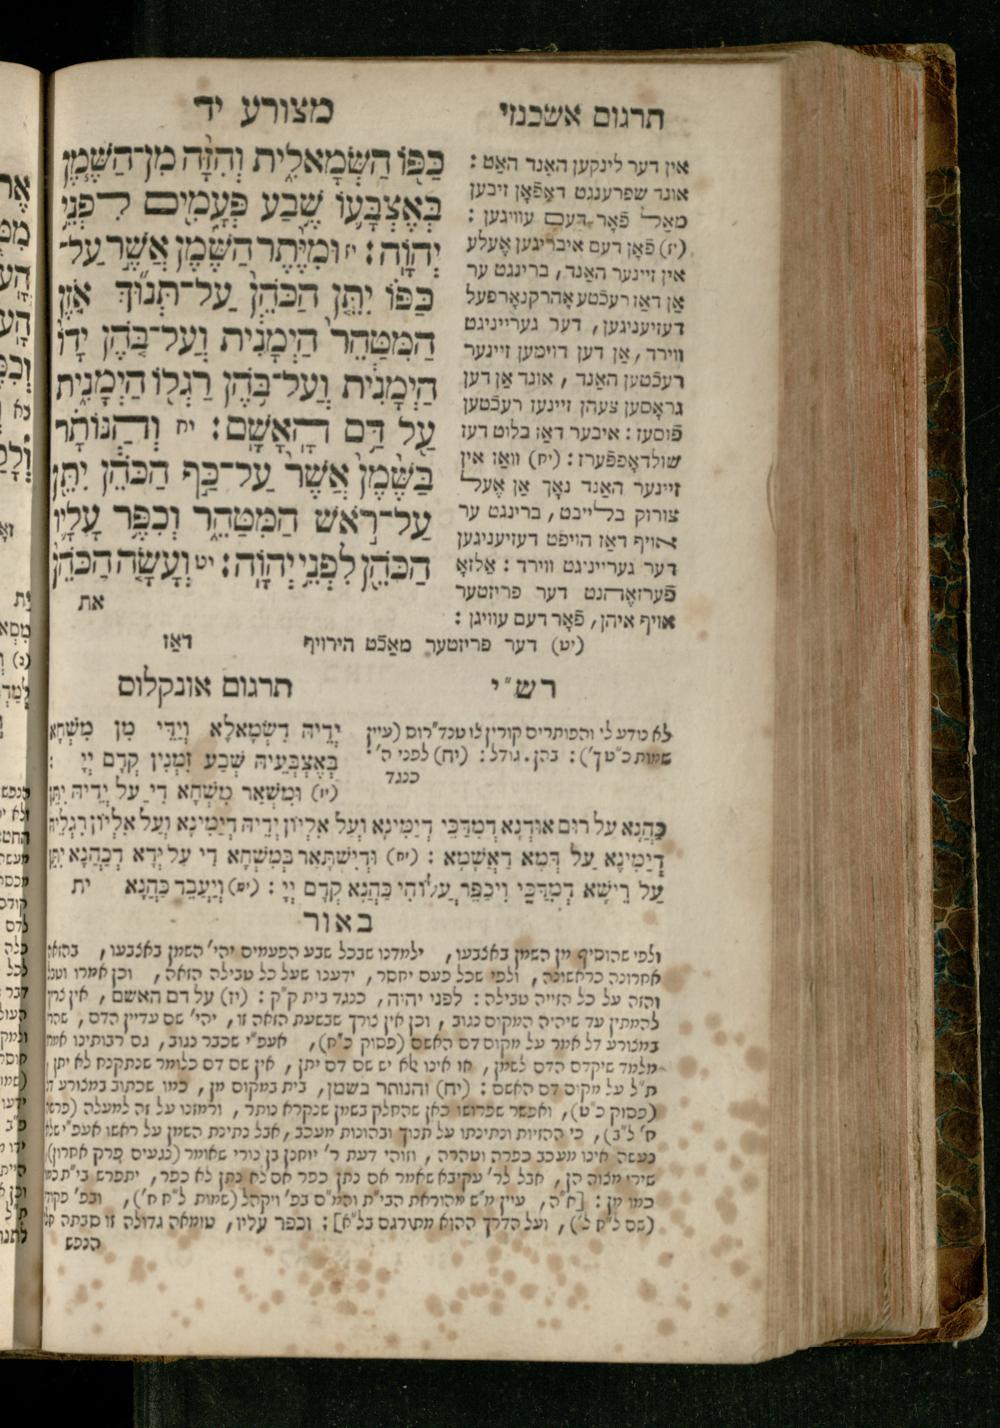 תרגום אשכנזי
מצורע יד
כַּפּוֹ הַשְּׂמָאלִ֑ית וְהִזָּה מִן־הַשֶּׁמֶן
בְּאֶצְבָּעוֹ שֶׁבַע פְּעָמִים לִפְנֵי
יְהוָֹה׃ יז וּמִיֶּתֶר הַשֶּׁמֶן אֲשֶׁר עַל־
כַּפּוֹ יִתֵּן הַכֹּהֵן עַל־תְּנוּךְ אֹזֶן
הַמִּטַּהֵר הַיְמָנִית וְעַל־בֹּהֶן יָדוֹ
הַיְמָנִית וְעַל־בֹּהֶן רַגְלוֹ הַיְמָנִית
עַל דַּם הָאָשָׁם׃ יח וְהַנּוֹתָר
בַּשֶּׁמֶן אֲשֶׁר עַל־כַּף הַכֹּהֵן יִתֵּן
עַל־רֹאשׁ הַמִּטַּהֵר וְכִפֶּר עָלָיו
הַכֹּהֵן לִפְנֵי יְהוָֹה׃ יט וְעָשָׂה הַכֹּהֵן
את
אין דער לינקען האַנד האַט׃
אונד שפרענגט דאַפֿאָן זיבען
מאַל פֿאָר דעם עוויגען׃
(יז) פֿאָן דעם איבריגען אָעלע
אין זיינער האַנד, ברינגט ער
אַן דאַז רעכֿטע אָהרקנאָרפעל
דעזיעניגען, דער גערייניגט
ווירד, אַן דען דוימען זיינער
רעכֿטען האַנד, אונד אַן דען
גראָסען צעהן זיינעז רעכֿטען
פֿוסעז׃ איבער דאַז בלוט דעז
שולדאָפפֿערז׃ (יח) וואַז אין
זיינער האַנד נאָך אַן אָעל
צורוק בלייבט, ברינגט ער
אויף דאַז הויפט דעזיעניגען
דער גערייניגט ווירד׃ אַלזאָ
פֿערזאָהנט דער פריזטער
אויף איהן, פֿאָר דעם עוויגן׃
(יט) דער פריזטער מאַכֿט הירויף דאַז
רש״י
לא נודע לי והפותרים קורין לו טנד״רוס (עיין
שמות כ״ט ך׳)׃ בהן. גודל׃ (יח) לפני ה׳.
כנגד
תרגום אונקלוס
יְדֵיהּ דִשְׂמָאלָא וְיַדֵּי מִן מִשְׁחָא
בְּאֶצְבְּעֵיהּ שְׁבַע זִמְנִין קֳדָם יְיָ׃
(יז) וּמִשְּׁאַר מִשְׁחָא דִי עַל יְדֵיהּ יִתֵּן
כַּהֲנָא עַל רוּם אוּדְנָא דְמִדַּכֵּי דְיַמִּינָא וְעַל אִלְיוֹן יְדֵיהּ דְיַמִּינָא וְעַל אִלְיוֹן רִגְלֵיהּ
דְיַמִּינָא עַל דְמָא דַאֲשָׁמָא׃ (יח) וּדְיִשְׁתָּאַר בְּמִשְׁחָא דִי עַל יְדָא דְכַהֲנָא יִתֵּן
עַל רֵישָׁא דְמִדַּכֵּי וִיכַפֵּר עֲלוֹהִי כַּהֲנָא קֳדָם יְיָ׃ (יט) וְיַעְבֵּד כַּהֲנָא ית
באור
ולפי שהוסיף מן השמן באצבעו, ילמדנו שבכל שבע הפעמים יהי׳ השמן באצבעו, בהזאה
אחרונה כראשונה, ולפי שכל פעם יחסר, ידענו שעל כל טבילה הזאה, וכן אמרו וטבל
והזה על כל הזייה טבילה׃ לפני יהוה, כנגד בית ק״ק׃ (יז) על דם האשם, אין צרין
להמתין עד שיהיה המקום נגוב, וכן אין צורך שבשעת הזאה זו, יהי׳ שם עדיין הדם, שהרי
במצורע דל אמר על מקום דם האשם (פסוק כ״ח), אעפ״י שכבר נגוב, גם רבותינו אמרו
מלמד שיקדם הדם לשמן, או אינו אלא יש שם דם יתן, אין שם דם כלומר שנתקנח לא יתן,
ת״ל על מקום דם האשם׃ (יח) והנותר בשמן, בית במקום מן, כמו שכתוב במצורע דל
(פסוק כ״ט), ואפשר שפרושו כאן שהחלק בשמן שנקרא נותר, ורמזנו על זה למעלה (פרשה
ח׳ ל״ב), כי ההזיות ונתינתו על תנוך ובהונות מעכב, אבל נתינת השמן על ראשו אעפ״י שלא
נעשה אינו מעכב כפרה וטהרה, וזוהי דעת ר׳ יוחנן בן נורי שאומר (נגעים פרק אחרון)
שירי מצוה הן, אבל לר׳ עקיבא שאמר אם נתן כפר אם לא נתן לא כפר, יתפרש בי״ת כמו
כמו מן׃ [א״ה, עיין מ״ש מהוראת הבי״ת והמ״ם בפ׳ ויקהל (שמות ל״ח ח׳), ובפ׳ פקודי
(שם ל״ח ל׳), ועל הדרך ההוא מתורגם בל״א]׃ וכפר עליו, טומאה גדולה זו סבתה חלי
הנפש